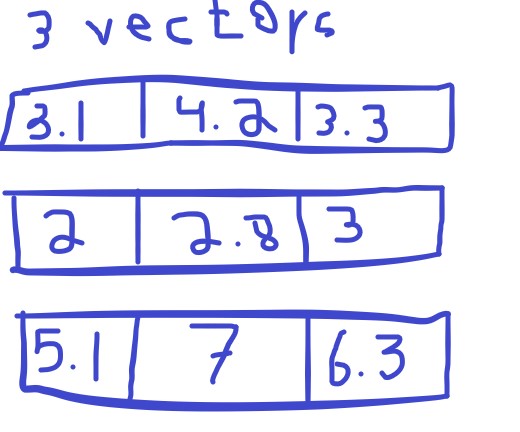 3 vectors
3.1 4.2 3.3
2 2.8 3
5.1 7 6.3